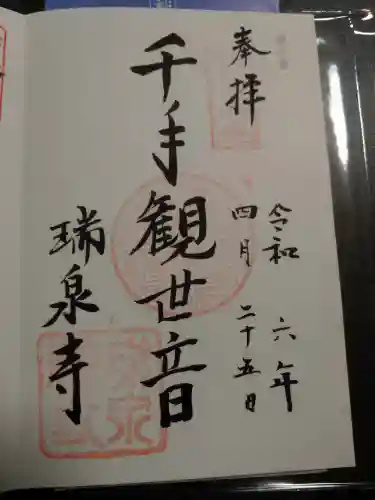 奉拝
令和六年
四月二十五日
千手観世音
瑞泉寺